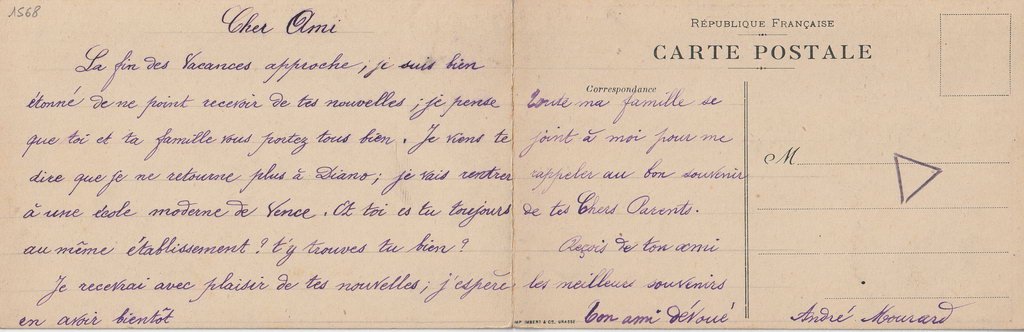 1568
Cher Ami
La fin des Vacances approche, je suis bien
étonné de ne point recevoir de tes nouvelles ; je pense
que toi et ta famille vous portez tous bien. Je viens te
dire que je ne retourne plus à Diano ; je vais rentrer
à une école moderne de Vence. Et toi es tu toujours
au même établissement ? t'y trouves tu bien ?
Je recevrai avec plaisir de tes nouvelles ; j'espère
en avoir bientôt
RÉPUBLIQUE FRANÇAISE
CARTE POSTALE
Correspondance
toute ma famille se
joint à moi pour me
rappeler au bon souvenir
de tes Chers Parents.
Reçois de ton ami
les meilleurs souvenirs
ton ami dévoué
IMP. IMBERT & CIE, GRASSE
M
André Mourard